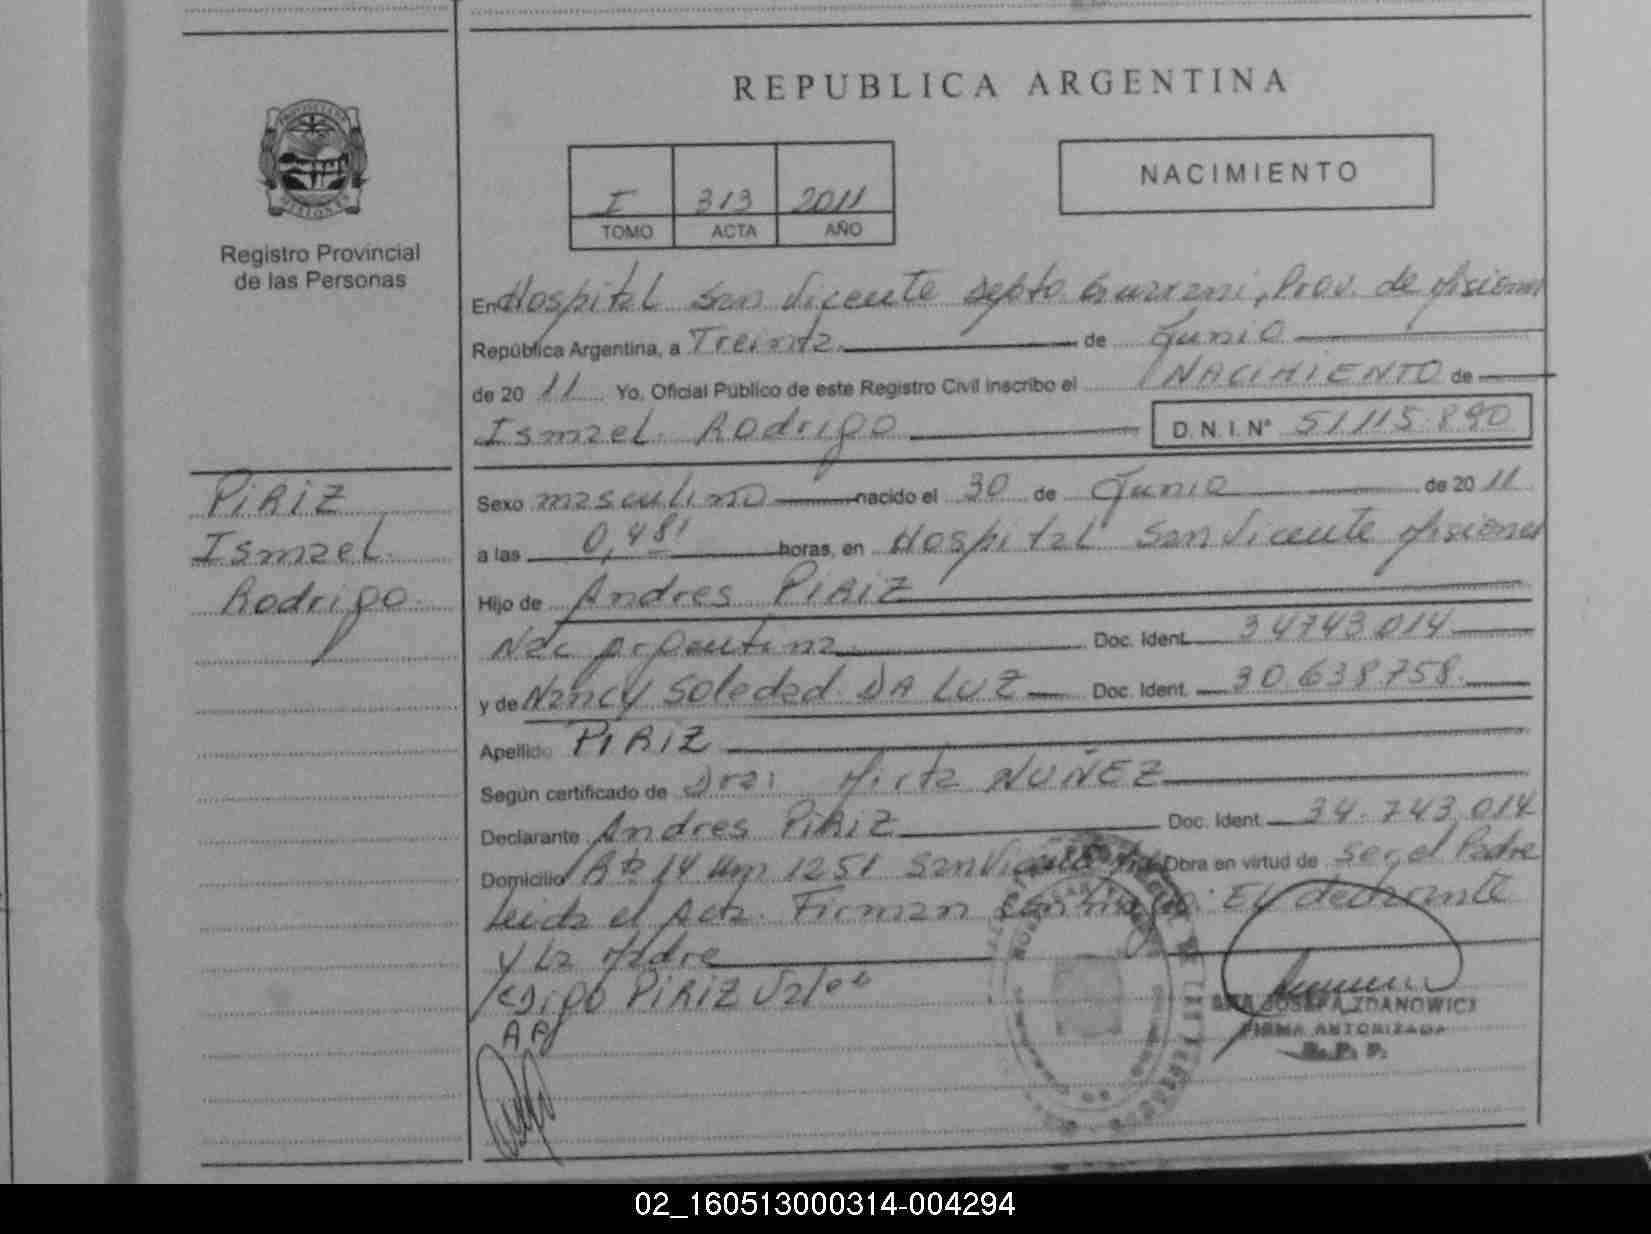 REPUBLICA ARGENTINA
I 313 2011
TOMO ACTA AÑO
NACIMIENTO
Registro Provincial
de las Personas
En Hospital San Vicente Depto Guarani, Prov. de Misiones
República Argentina, a Treinta de Junio
de 20 11 Yo, Oficial Público de este Registro Civil inscribo el NACIMIENTO de
Ismael Rodrigo D.N.I.Nº 51.115.890
PIRIZ
Ismael
Rodrigo.
Sexo masculino nacido el 30 de Junio de 20 11
a las 0,48' horas, en Hospital San Vicente Misiones
Hijo de Andres PIRIZ
Nac Argentina Doc. Ident. 34743.014
y de Nancy Soledad DA LUZ Doc. Ident. 30.638.758
Apellido PIRIZ
Según certificado de Dra: Mirta NUÑEZ
Declarante Andres PIRIZ Doc. Ident. 34.743.014
Domicilio Rta 14 Km 1251 San Vicente Obra en virtud de ser el Padre
Leida el Acta. Firman conmigo: El declarante
y La Madre
PIRIZ Vale
A.P
JOSEFA ZDANOWICZ
FIRMA AUTORIZADA
R. P. P.
02_160513000314-004294